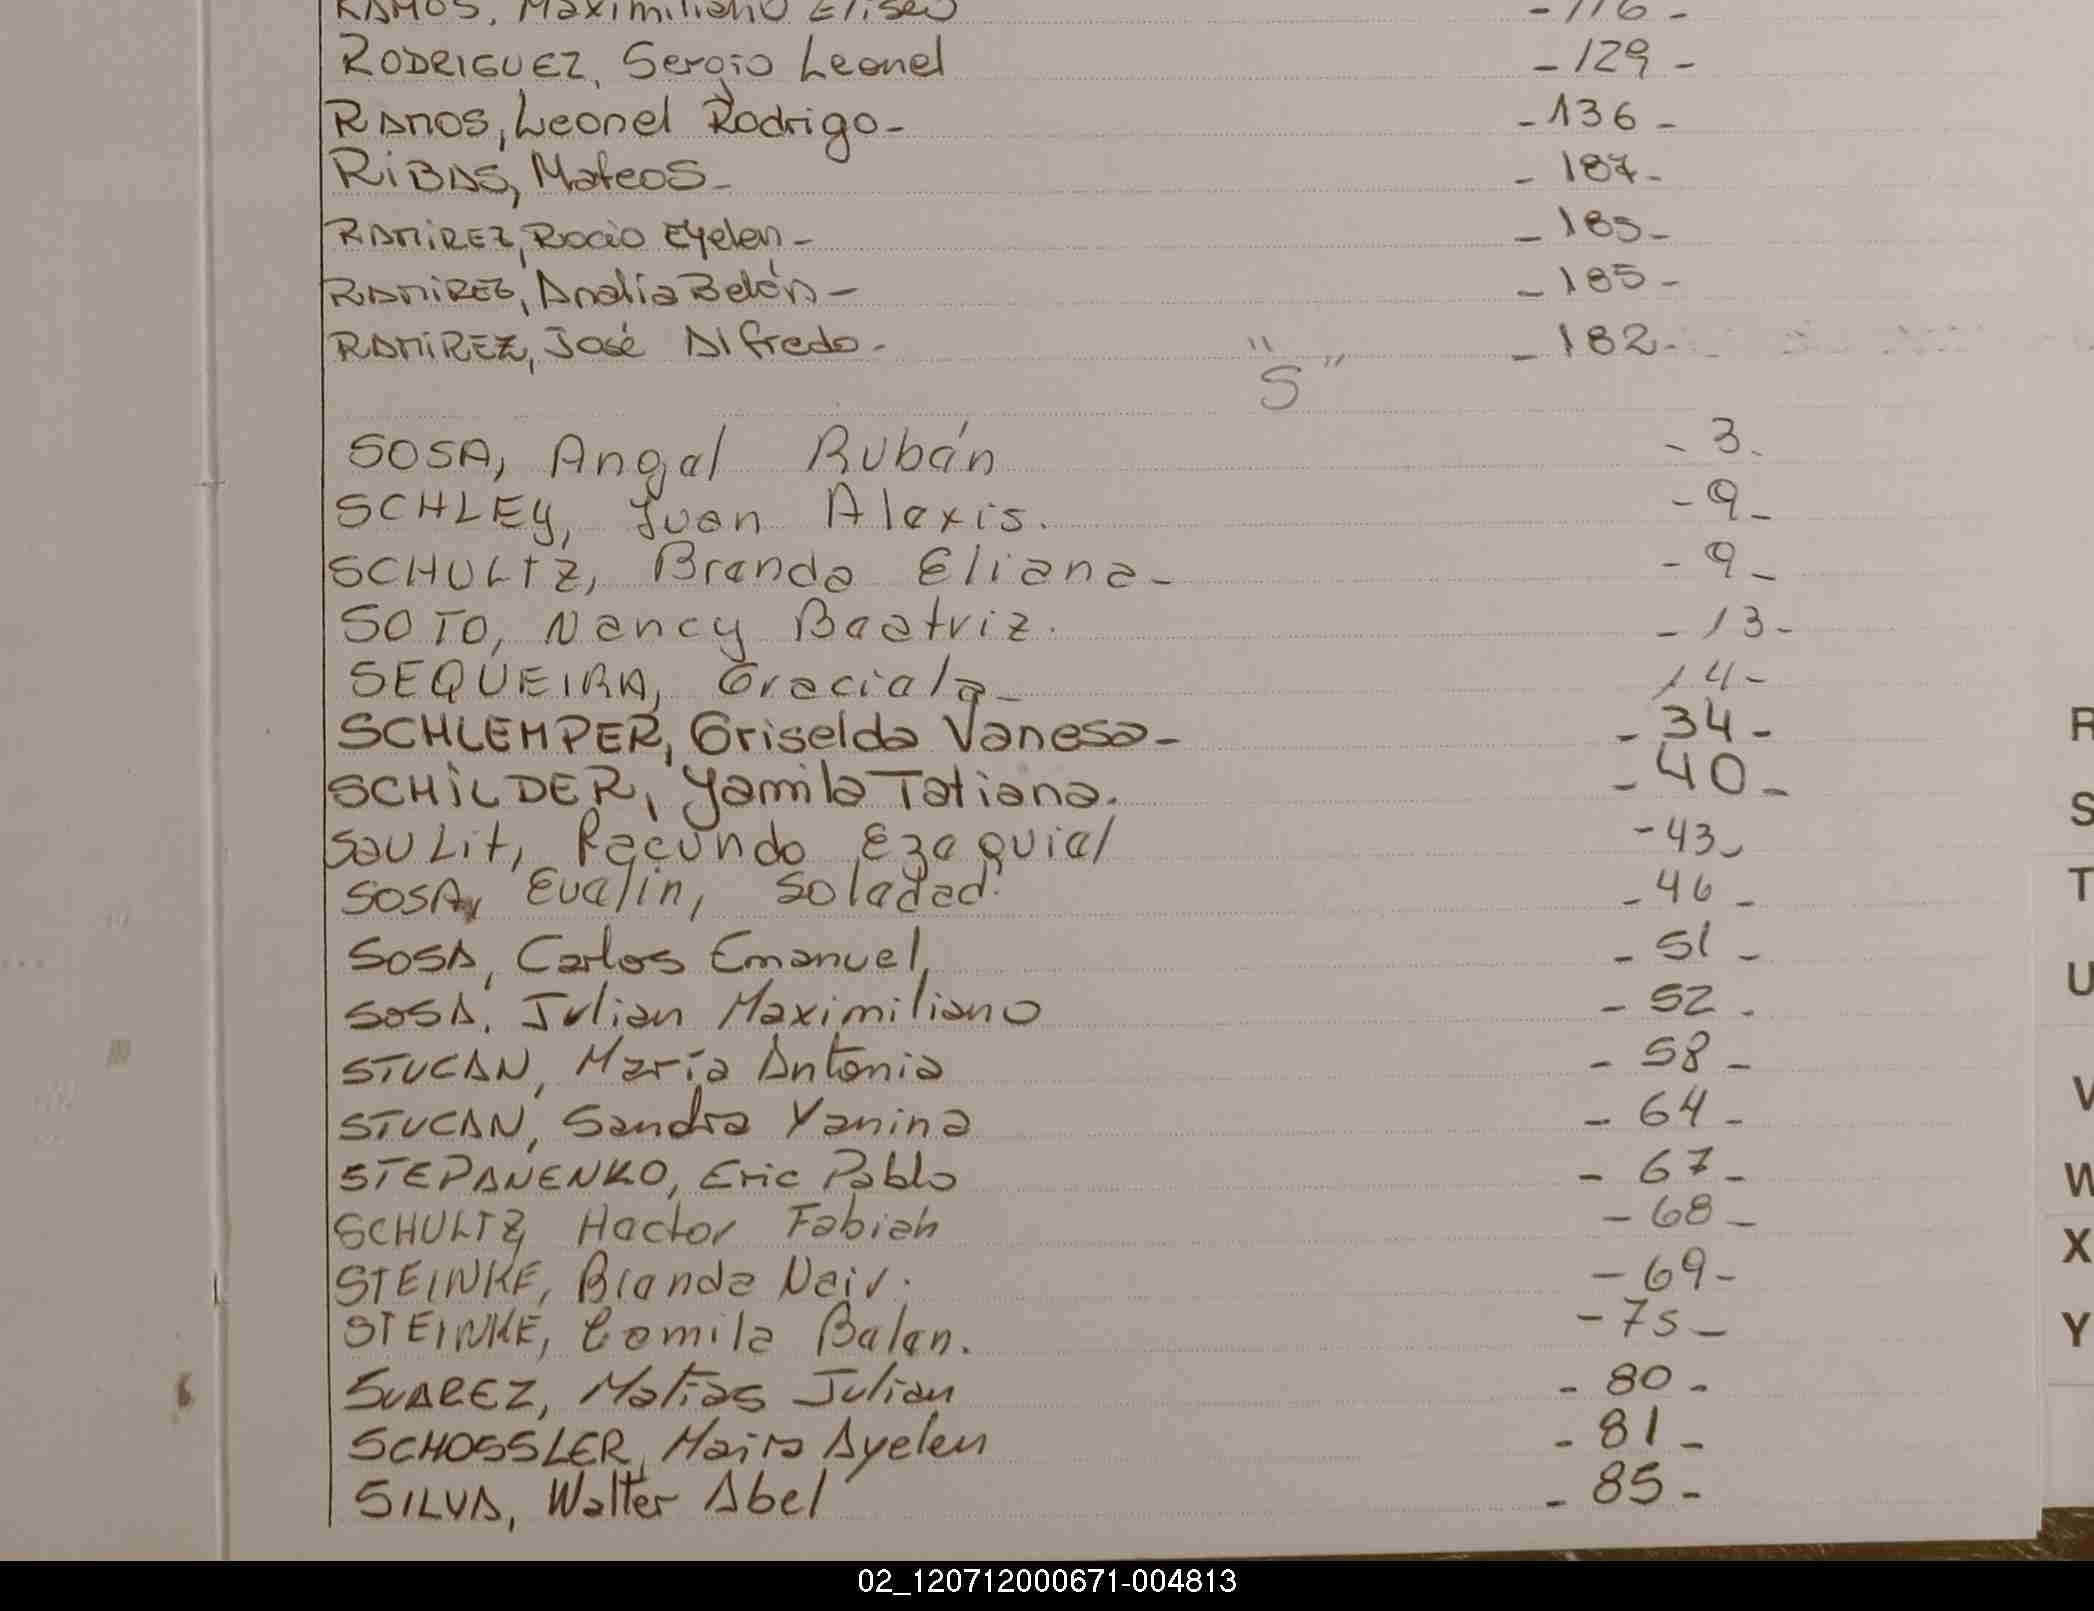 RAMOS, Maximiliano Eliseo - 116 -
RODRIGUEZ, Sergio Leonel - 129 -
RAMOS, Leonel Rodrigo - - 136 -
RiBAS, Mateos - - 187 -
RAMIREZ, Rocio Eyelen - - 185 -
RAMiREZ, Analia Belén - - 185 -
RAMiREZ, José Alfredo - - 182 -
"S"
SOSA, Angel Rubén - 3.
SCHLEY, Juan Alexis. - 9 -
SCHULTZ, Brenda Eliana - - 9 -
SOTO, Nancy Beatriz. - 13 -
SEQUEIRA, Graciela - 14 -
SCHLEMPER, Griselda Vanesa - - 34 -
SCHiLDER, Yamila Tatiana. - 40 -
SauLit, Facundo Ezequiel - 43 -
SOSA, Evelin, Soledad. - 46 -
SOSA, Carlos Emanuel, - 51 -
SOSA, Julian Maximiliano - 52 .
STUCAN, María Antonia - 58 -
STUCAN, Sandra Yanina - 64 -
STEPANENKO, Eric Pablo - 67 -
SCHULTZ, Hector Fabian - 68 -
STEINKE, Brenda Neir. - 69 -
STEINKE, Camila Belen. - 75 -
SUAREZ, Matías Julian - 80 -
SCHOSSLER, Maira Ayelen - 81 -
SILVA, Walter Abel - 85 -
R
S
T
U
V
W
X
Y
02_120712000671-004813